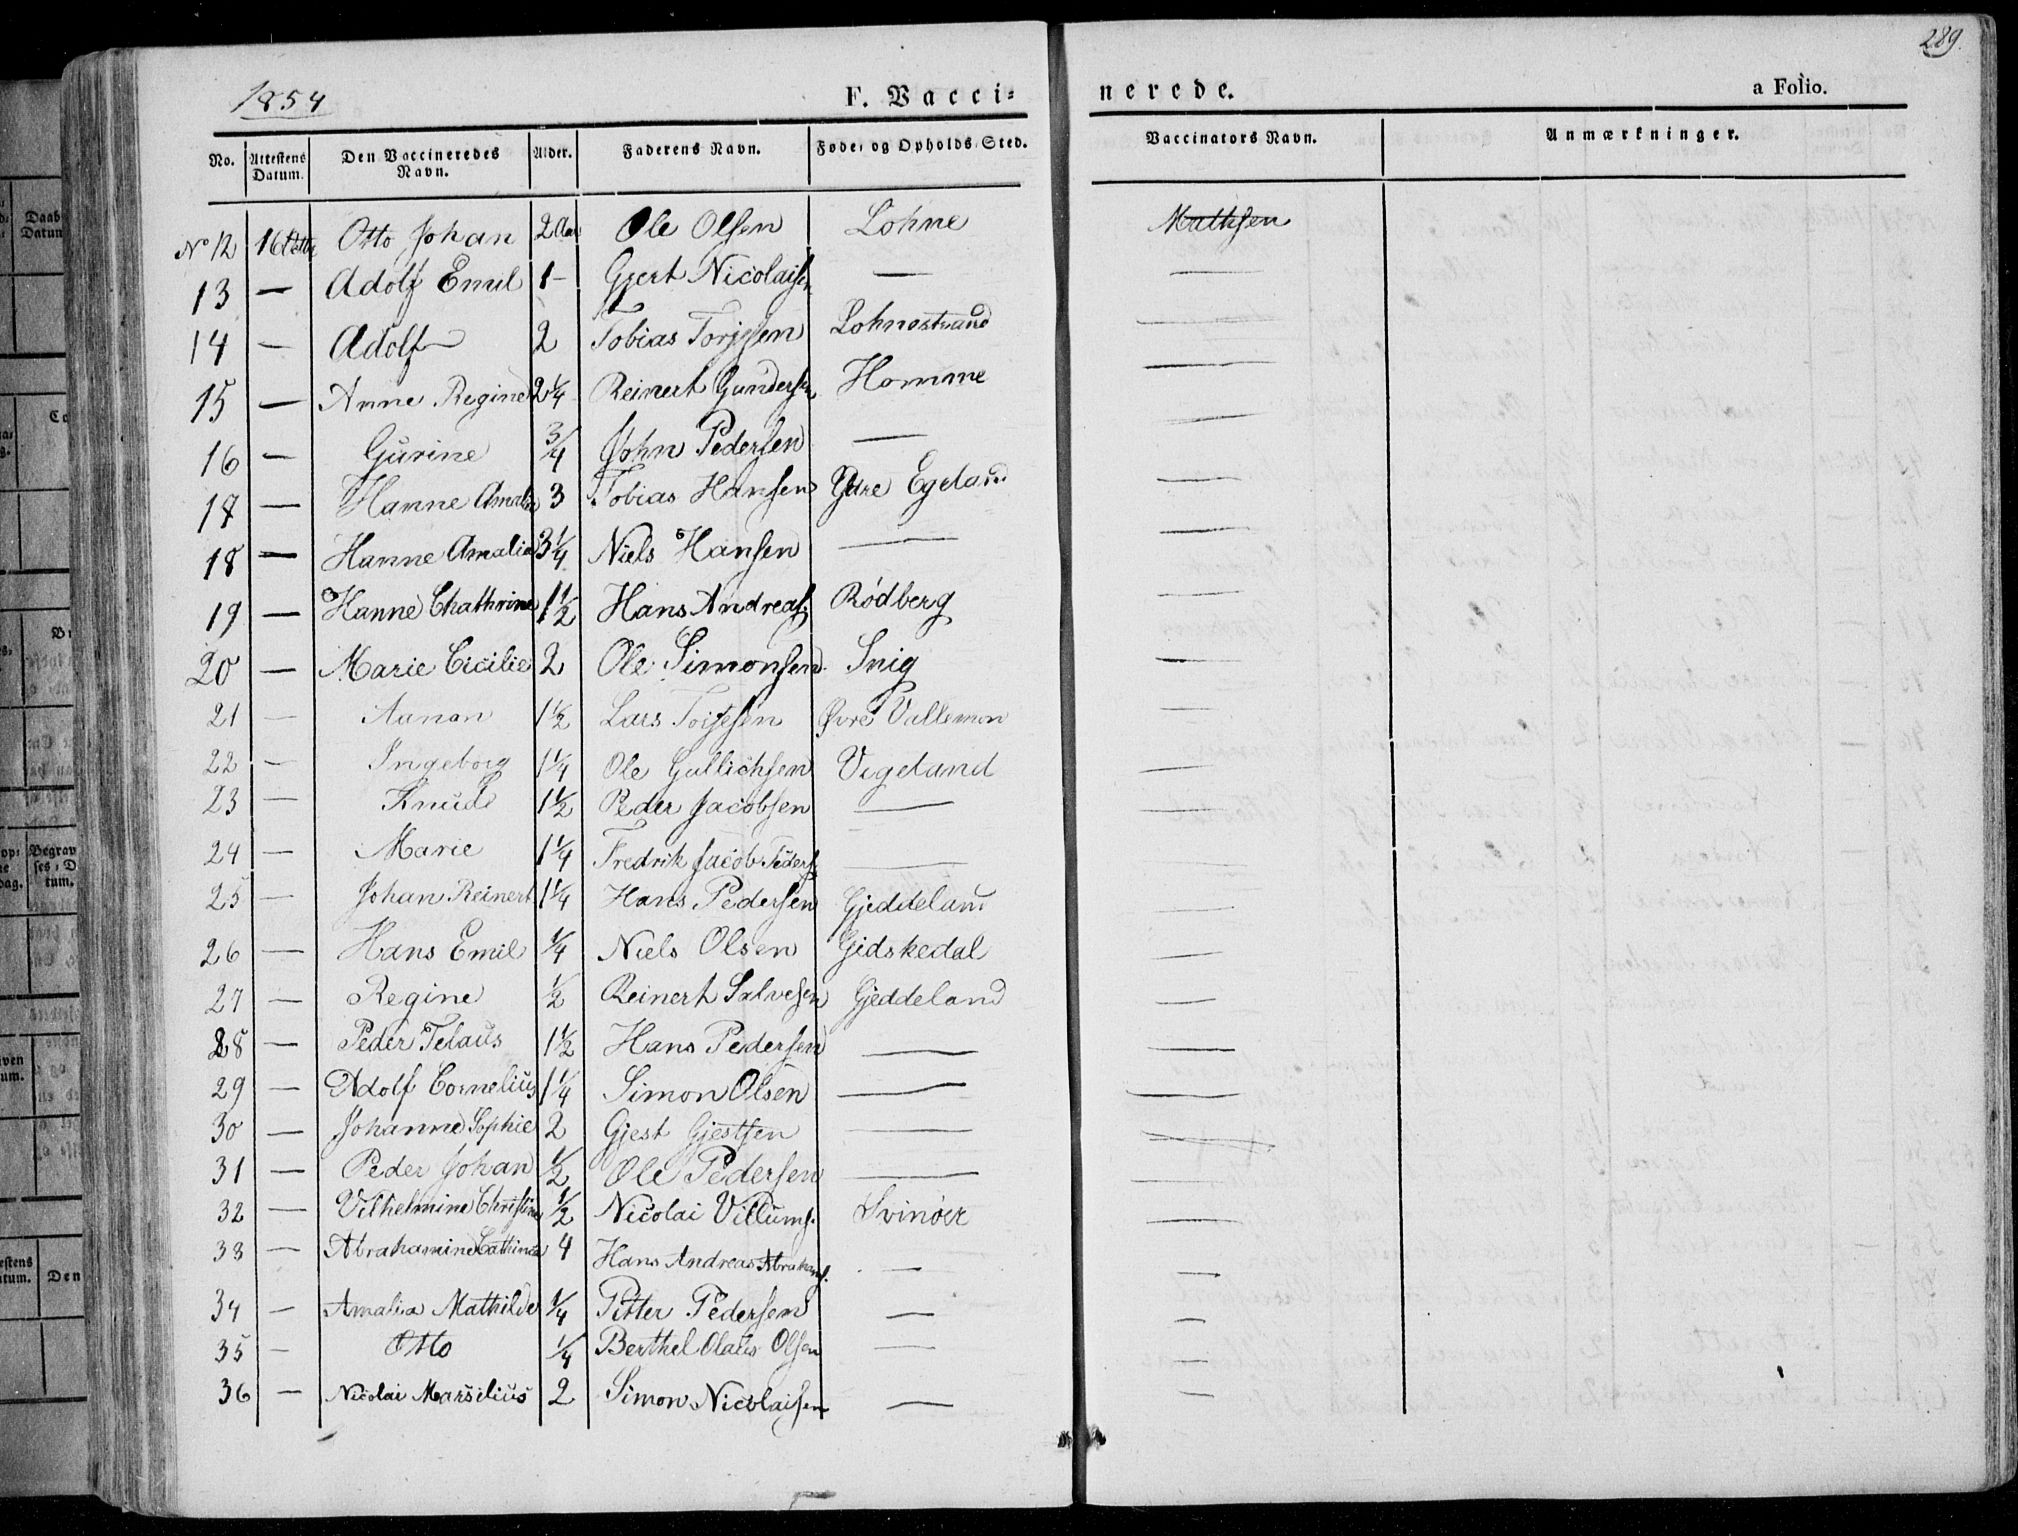 289.
1854 F. Vacci- nerede. a Folio.
No. Attestens Datum. Den Vaccineredes Navn. Alder. Faderens Navn. Føde- og Opholds-Sted. Vaccinators Navn. Anmærkninger.
No 12 16 Octbr Otto Johan 2 Aar Ole Olsen Lohne Mathsen
13 — Adolf Emil 1 - Gjert Nicolaisen — —
14 — Adolf 2 Tobias Torjesen Lohnestrand —
15 — Anne Regine 2 1/4 Reinert Gundersen Homme —
16 — Gurine 3/4 John Pedersen — —
17 — Hanne Amalia 3 Tobias Hansen Ydre Egeland —
18 — Hanne Amalia 3 1/4 Niels Hansen — —
19 — Hanne Chathrine 1 1/2 Hans Andreas. Rødberg —
20 — Marie Cicilie 2 Ole Simonsen Snig —
21 — Aanon 1 1/2 Lars Øvre Vallemon —
22 — Ingeborg 1 1/4 Ole Gullichsen Vigeland —
23 — Knud 1 1/2 Peder Jacobsen — —
24 — Marie 1 1/4 Fredrik Jacob Peders. — —
25 — Johan Reinert 1 1/4 Hans Pedersen Gjeddeland —
26 — Hans Emil 1/4 Niels Olsen Gidskedal —
27 — Regine 1/2 Reinert Salvesen Gjeddeland —
28 — Peder Telaus 1 1/2 Hans Pedersen — —
29 — Adolf Cornelius 1 1/4 Simon Olsen — —
30 — Johanne Sophie 2 Gjest Gjestsen — —
31 — Peder Johan 1/2 Ole Pedersen — —
32 — Vilhelmine Christine 1/2 Nicolai Villums. Svinøer —
33 — Abrahamine Cathinca 4 Hans Andreas Abrahams. — —
34 — Amalia Mathilde 1/4 Pitter Pedersen — —
35 — Otto 1/4 Berthel Olaus Olsen — —
36 — Nicolai Marsilius 2 Simon Nicolaisen — —